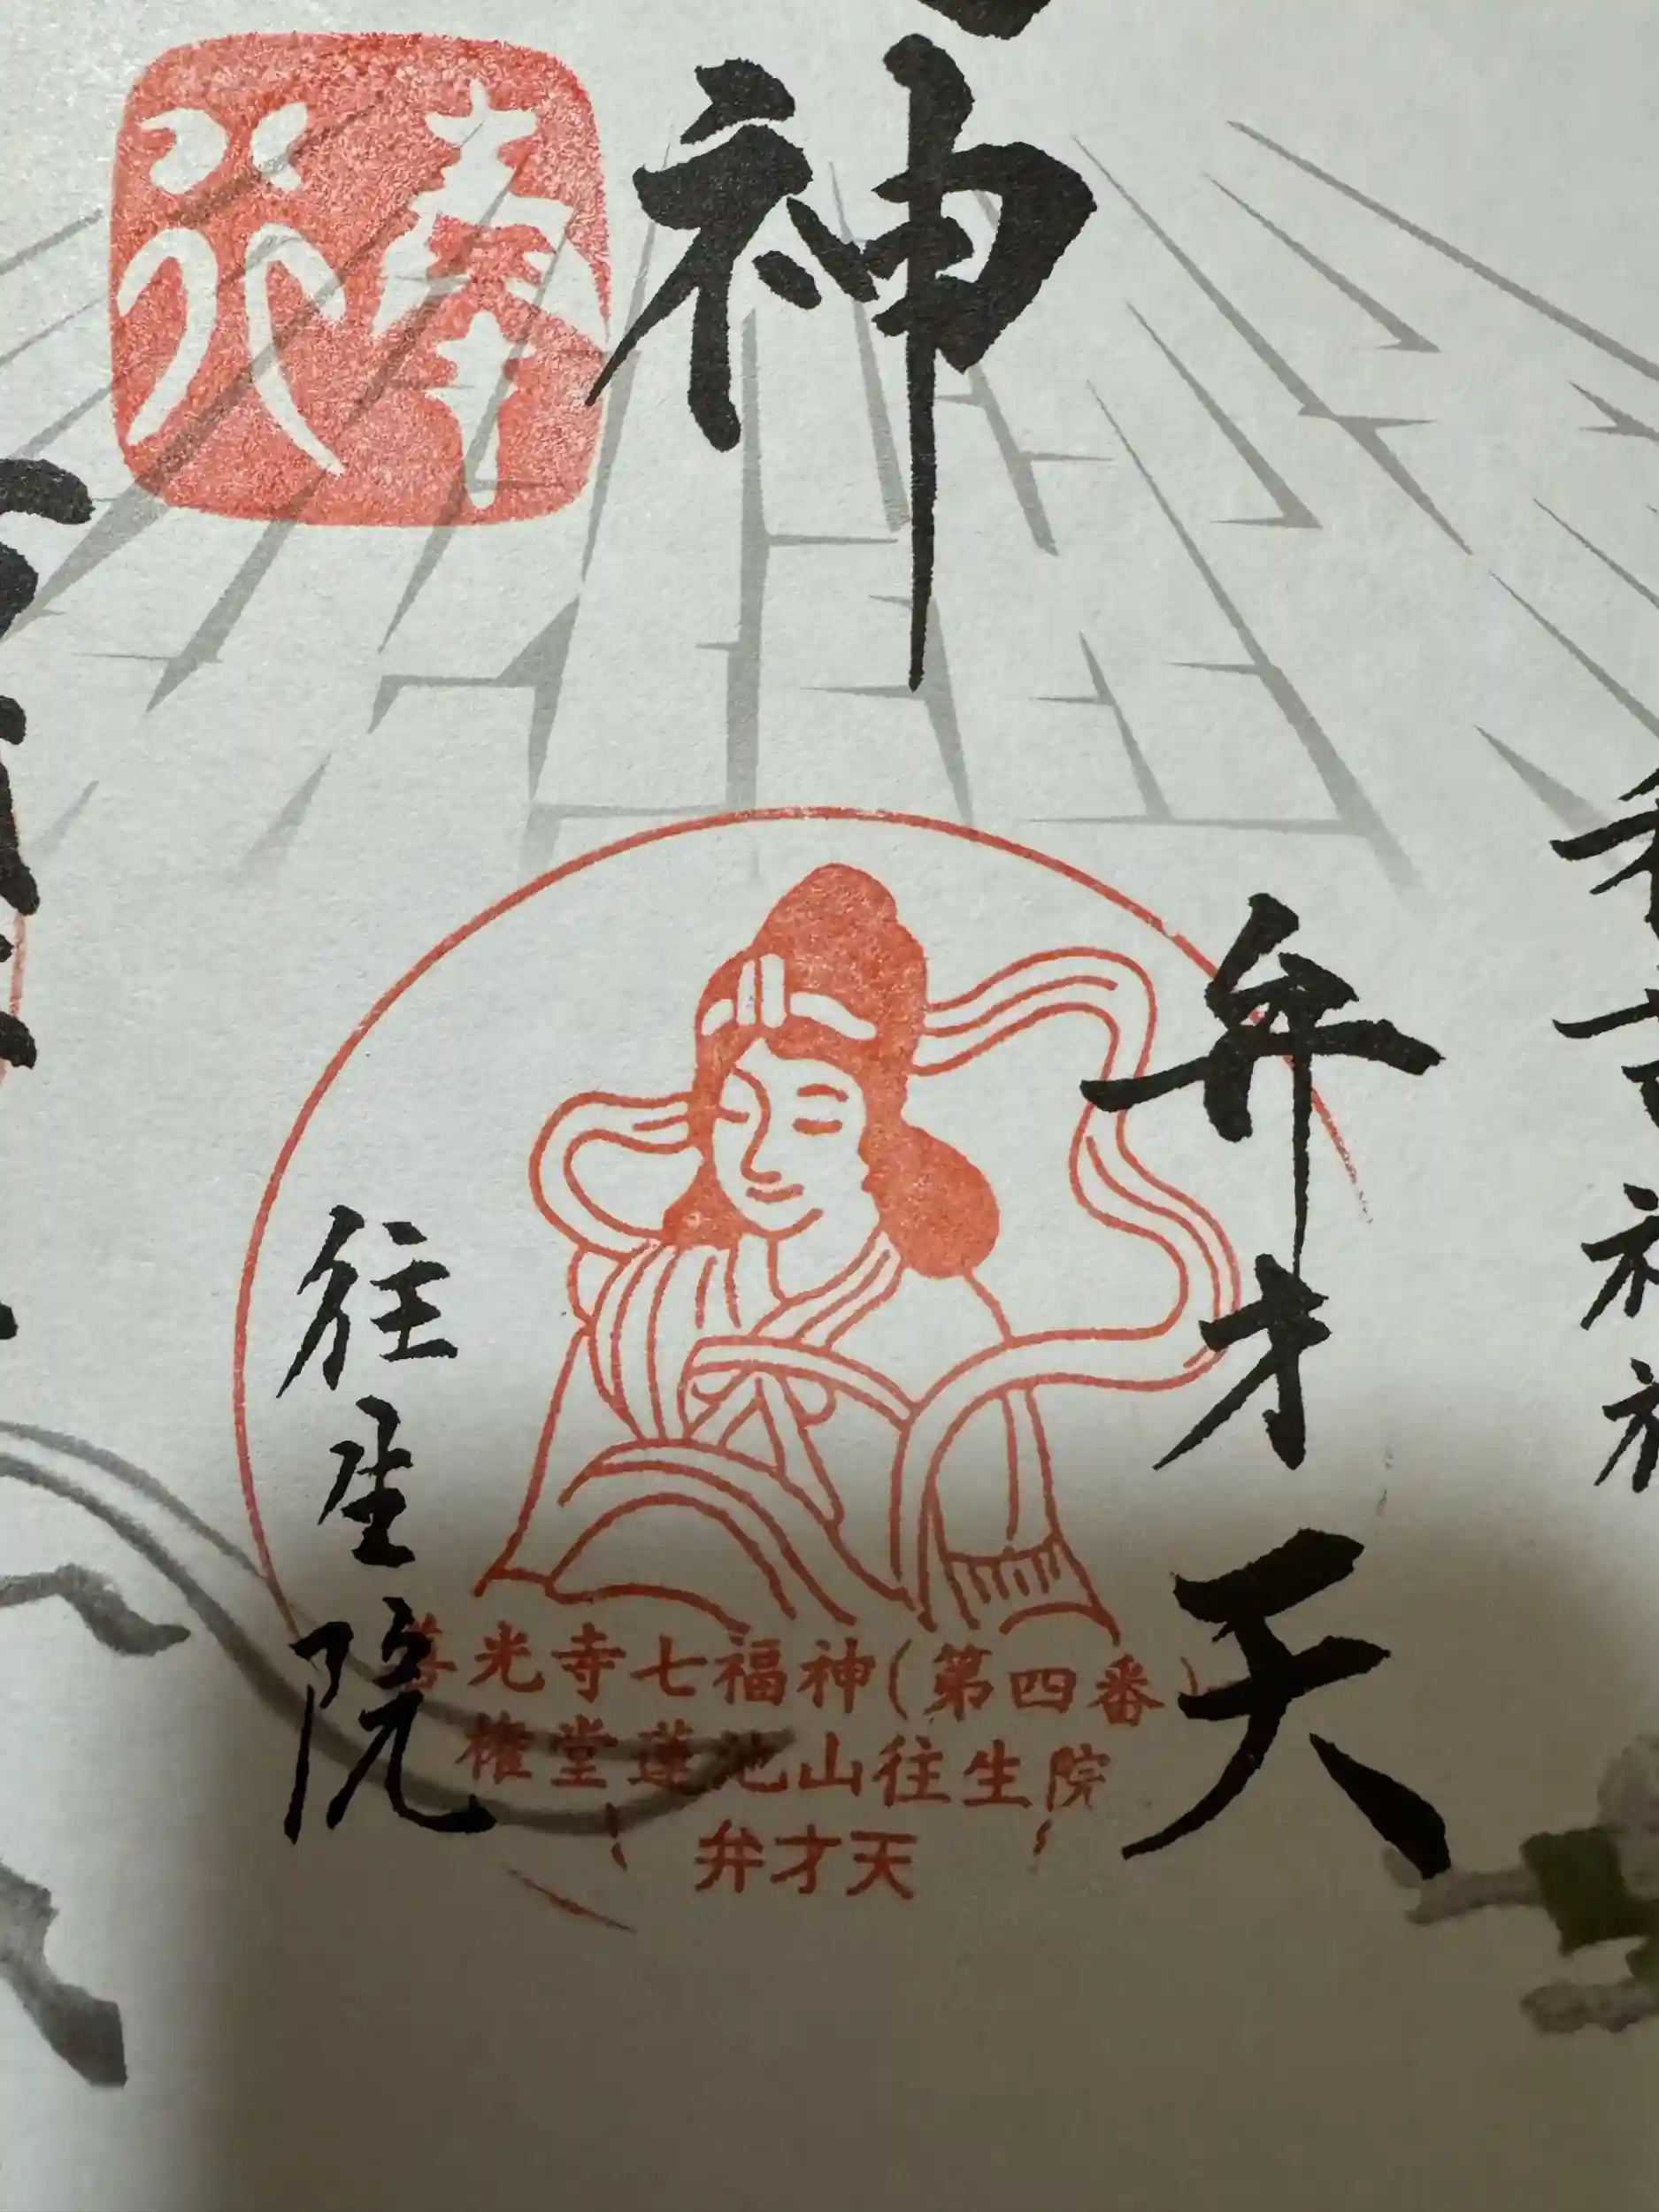 神
奉
行
弁才天
往生院
善光寺七福神(第四番)
権堂蓮池山往生院
弁才天